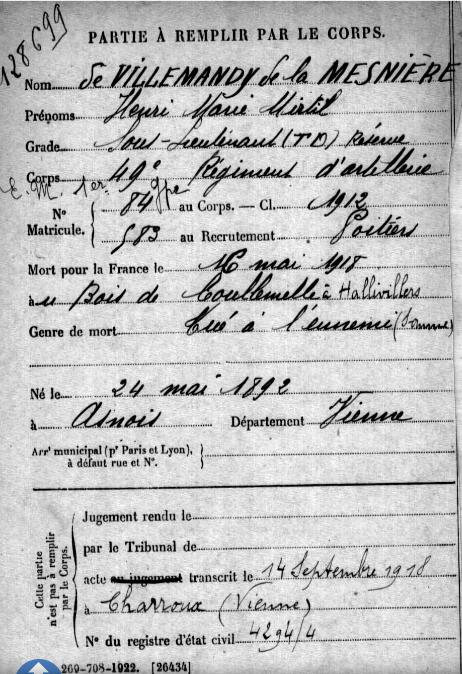 128699
PARTIE À REMPLIR PAR LE CORPS.
Nom de VILLEMANDY de la MESNIÈRE
Prénoms Henri Marie Mirtil
Grade Sous-Lieutenant (TD) Réserve
Corps 49e Régiment d'artillerie
E. M. 1er gpe
N° Matricule. 84 au Corps. — Cl. 1912
583 au Recrutement Poitiers
Mort pour la France le 16 mai 1918
à au Bois de Coullemelle à Hallivillers
Genre de mort Tué à l'ennemi (Somme)
Né le 24 mai 1892
à Asnois Département Vienne
Arrt municipal (pr Paris et Lyon),
à défaut rue et N°.
Cette partie n'est pas à remplir par le Corps.
Jugement rendu le
par le Tribunal de
acte au jugement transcrit le 14 Septembre 1918
à Charroux (Vienne)
N° du registre d'état civil 4294/4
269-708-1922. [26434]